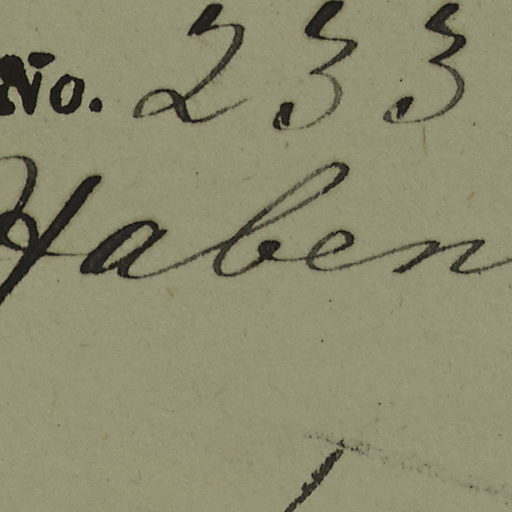 No. 233
Haben